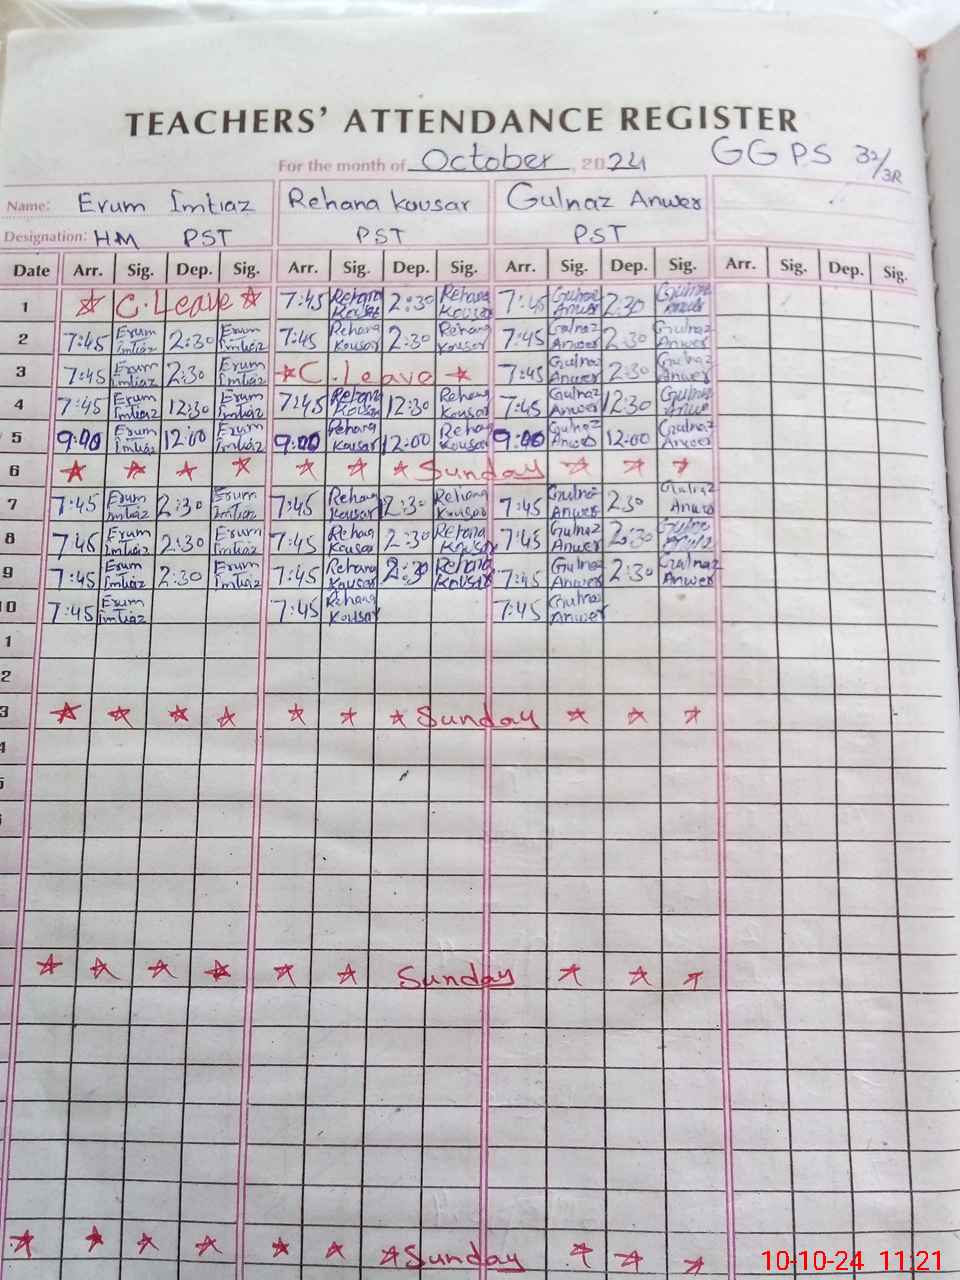 TEACHERS' ATTENDANCE REGISTER
For the month of October, 2024 GGPS 32/3R
Name: Erum Imtiaz Rehana Kousar Gulnaz Anwer
Designation: HM PST PST PST
Date Arr. Sig. Dep. Sig. Arr. Sig. Dep. Sig. Arr. Sig. Dep. Sig. Arr. Sig. Dep. Sig.
1 C. Leave 7:45 Rehana Kousar 2:30 Rehana Kousar 7:45 Gulnaz Anwer 2:30 Gulnaz Anwer
2 7:45 Erum Imtiaz 2:30 Erum Imtiaz 7:45 Rehana Kousar 2:30 Rehana Kousar 7:45 Gulnaz Anwer 2:30 Gulnaz Anwer
3 7:45 Erum Imtiaz 2:30 Erum Imtiaz C. Leave 7:45 Gulnaz Anwer 2:30 Gulnaz Anwer
4 7:45 Erum Imtiaz 12:30 Erum Imtiaz 7:45 Rehana Kousar 12:30 Rehana Kousar 7:45 Gulnaz Anwer 12:30 Gulnaz Anwer
5 9:00 Erum Imtiaz 12:00 Erum Imtiaz 9:00 Rehana Kousar 12:00 Rehana Kousar 9:00 Gulnaz Anwer 12:00 Gulnaz Anwer
6 Sunday
7 7:45 Erum Imtiaz 2:30 Erum Imtiaz 7:45 Rehana Kousar 2:30 Rehana Kousar 7:45 Gulnaz Anwer 2:30 Gulnaz Anwer
8 7:45 Erum Imtiaz 2:30 Erum Imtiaz 7:45 Rehana Kousar 2:30 Rehana Kousar 7:45 Gulnaz Anwer 2:30
9 7:45 Erum Imtiaz 2:30 Erum Imtiaz 7:45 Rehana Kousar 2:30 Rehana Kousar 7:45 Gulnaz Anwer 2:30 Gulnaz Anwer
10 7:45 Erum Imtiaz 7:45 Rehana Kousar 7:45 Gulnaz Anwer
1
2
3 Sunday
4
5
Sunday
Sunday
10-10-24 11:21